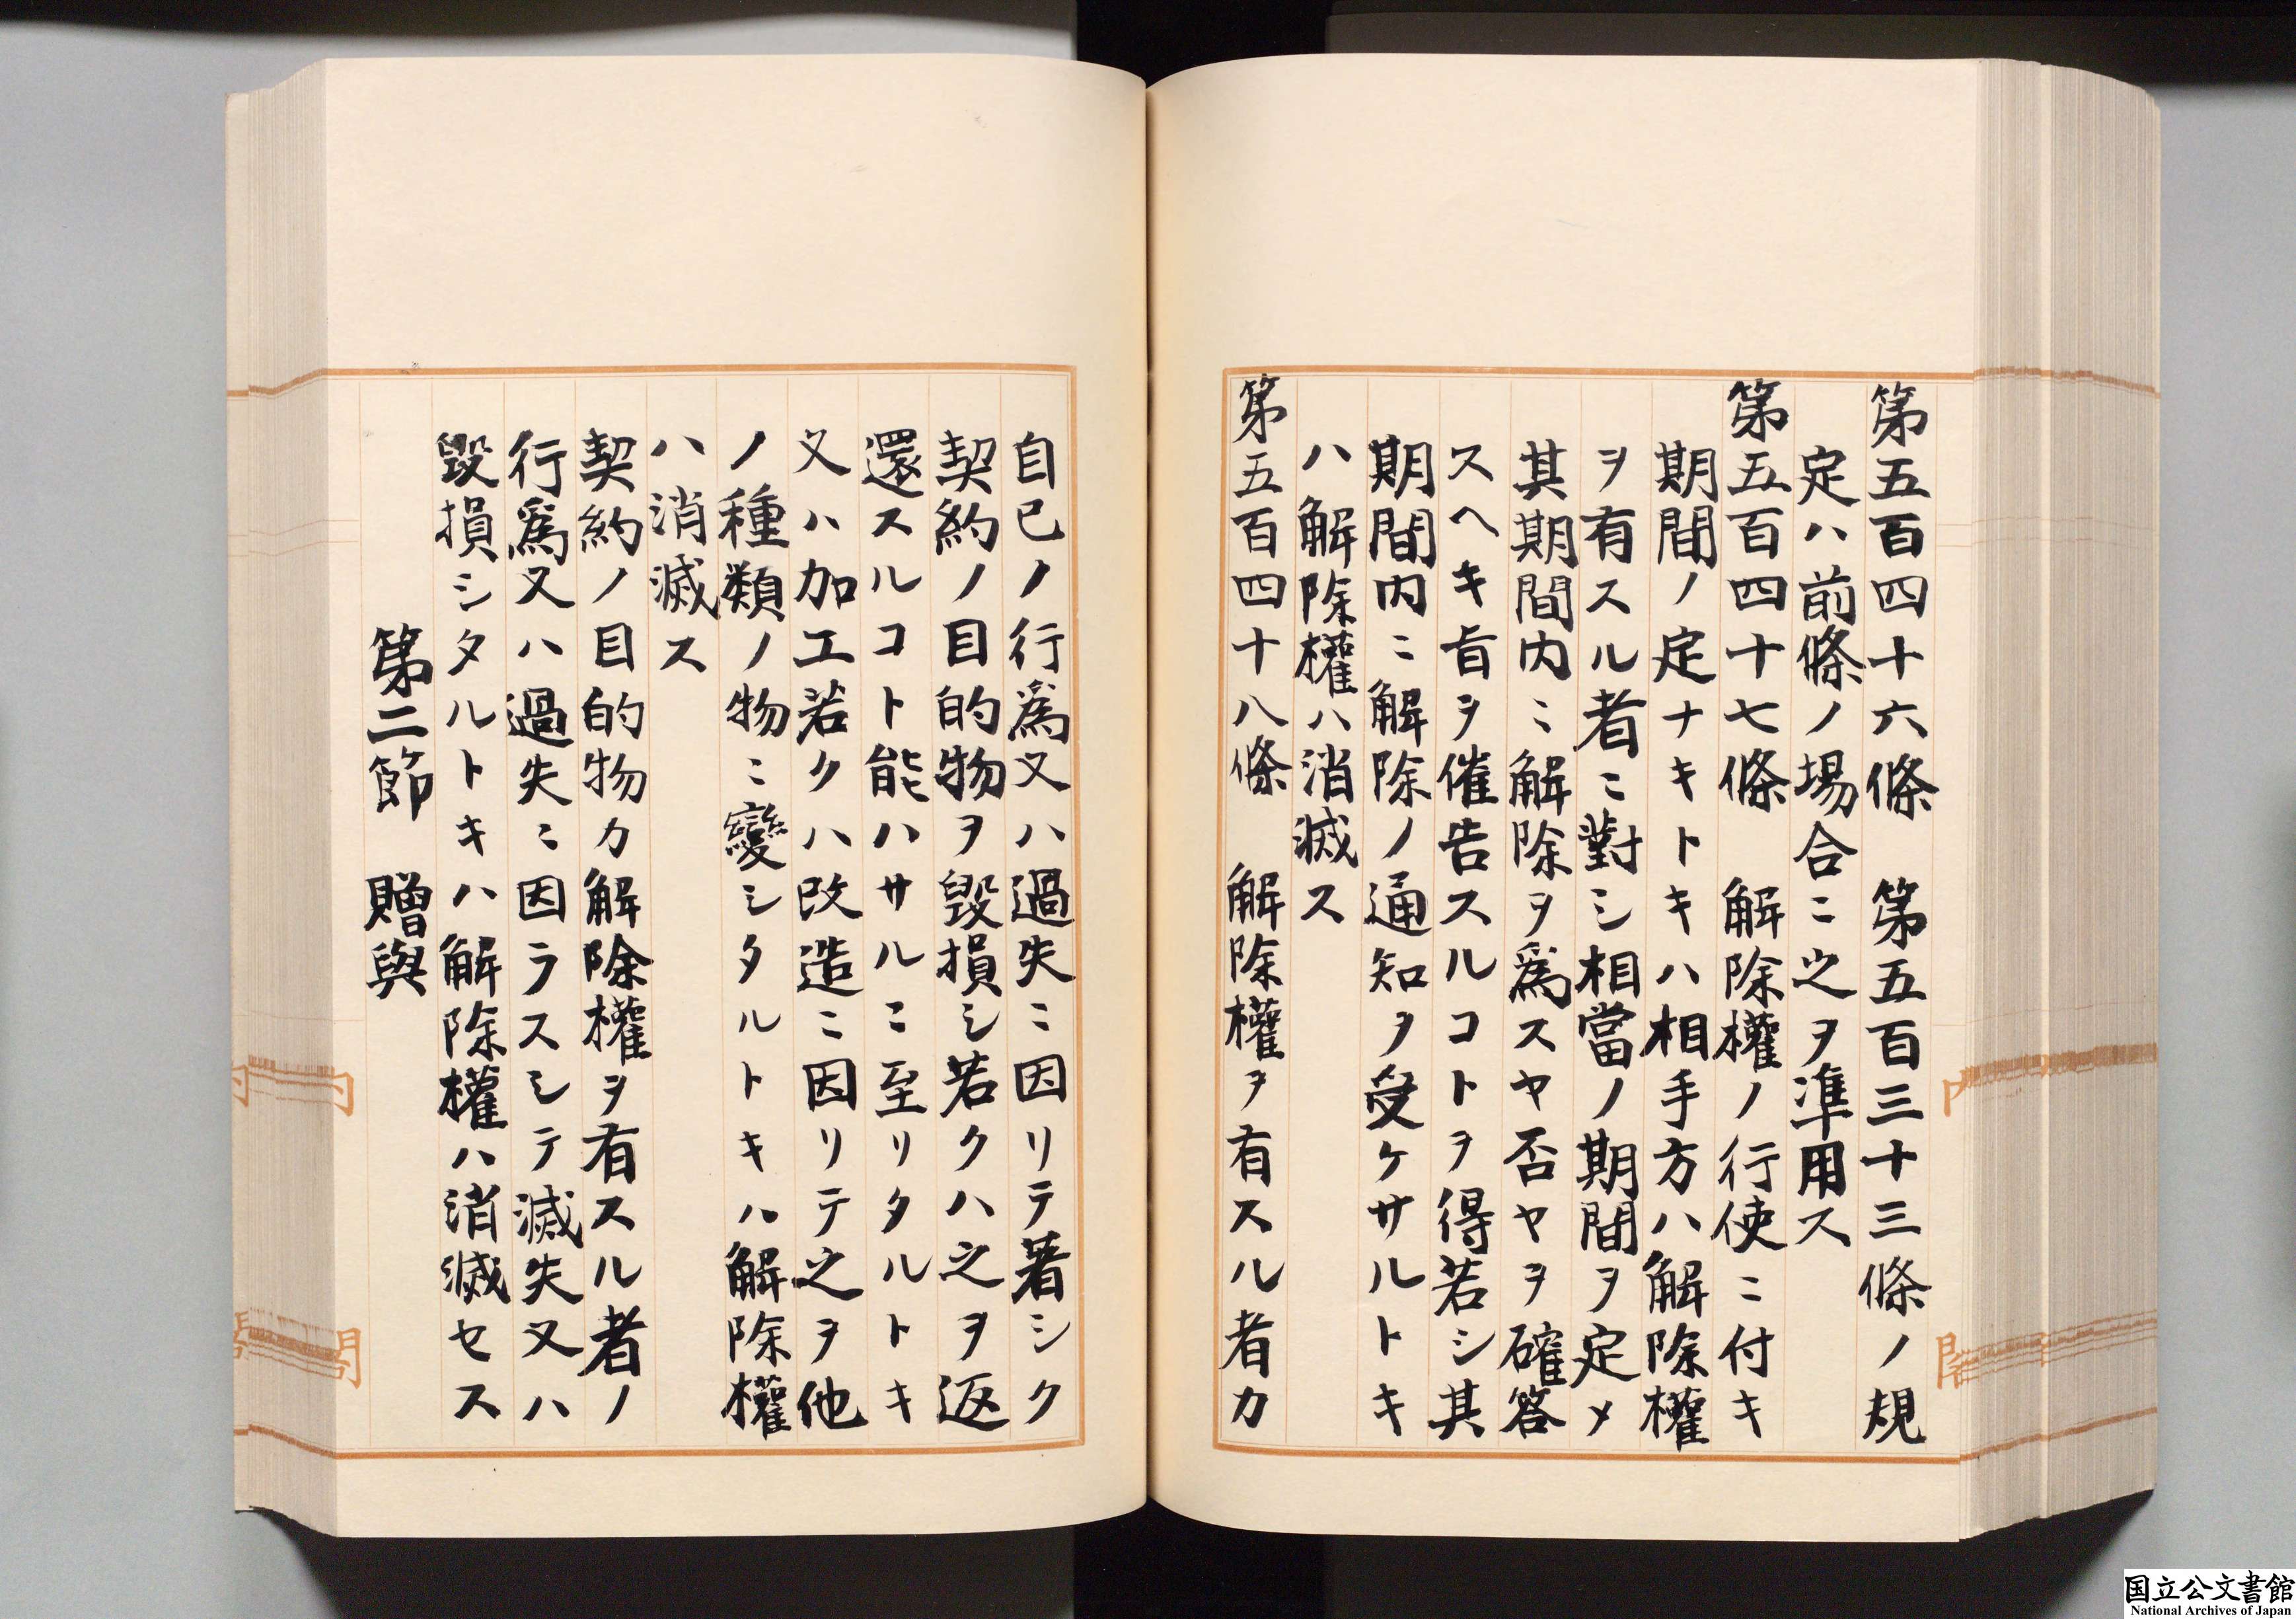 第五百四十六條　第五百三十三條ノ規
定ハ前條ノ場合ニ之ヲ準用ス
第五百四十七條　解除權ノ行使ニ付キ
期間ノ定ナキトキハ相手方ハ解除權
ヲ有スル者ニ對シ相當ノ期間ヲ定メ
其期間内ニ解除ヲ爲スヤ否ヤヲ確答
スヘキ旨ヲ催告スルコトヲ得若シ其
期間内ニ解除ノ通知ヲ受ケサルトキ
ハ解除權ハ消滅ス
第五百四十八條　解除權ヲ有スル者カ
自己ノ行爲又ハ過失ニ因リテ著シク
契約ノ目的物ヲ毀損シ若クハ之ヲ返
還スルコト能ハサルニ至リタルトキ
又ハ加工若クハ改造ニ因リテ之ヲ他
ノ種類ノ物ニ變シタルトキハ解除權
ハ消滅ス
契約ノ目的物カ解除權ヲ有スル者ノ
行爲又ハ過失ニ因ラスシテ滅失又ハ
毀損シタルトキハ解除權ハ消滅セス
第二節　贈與
国立公文書館
National Archives of Japan